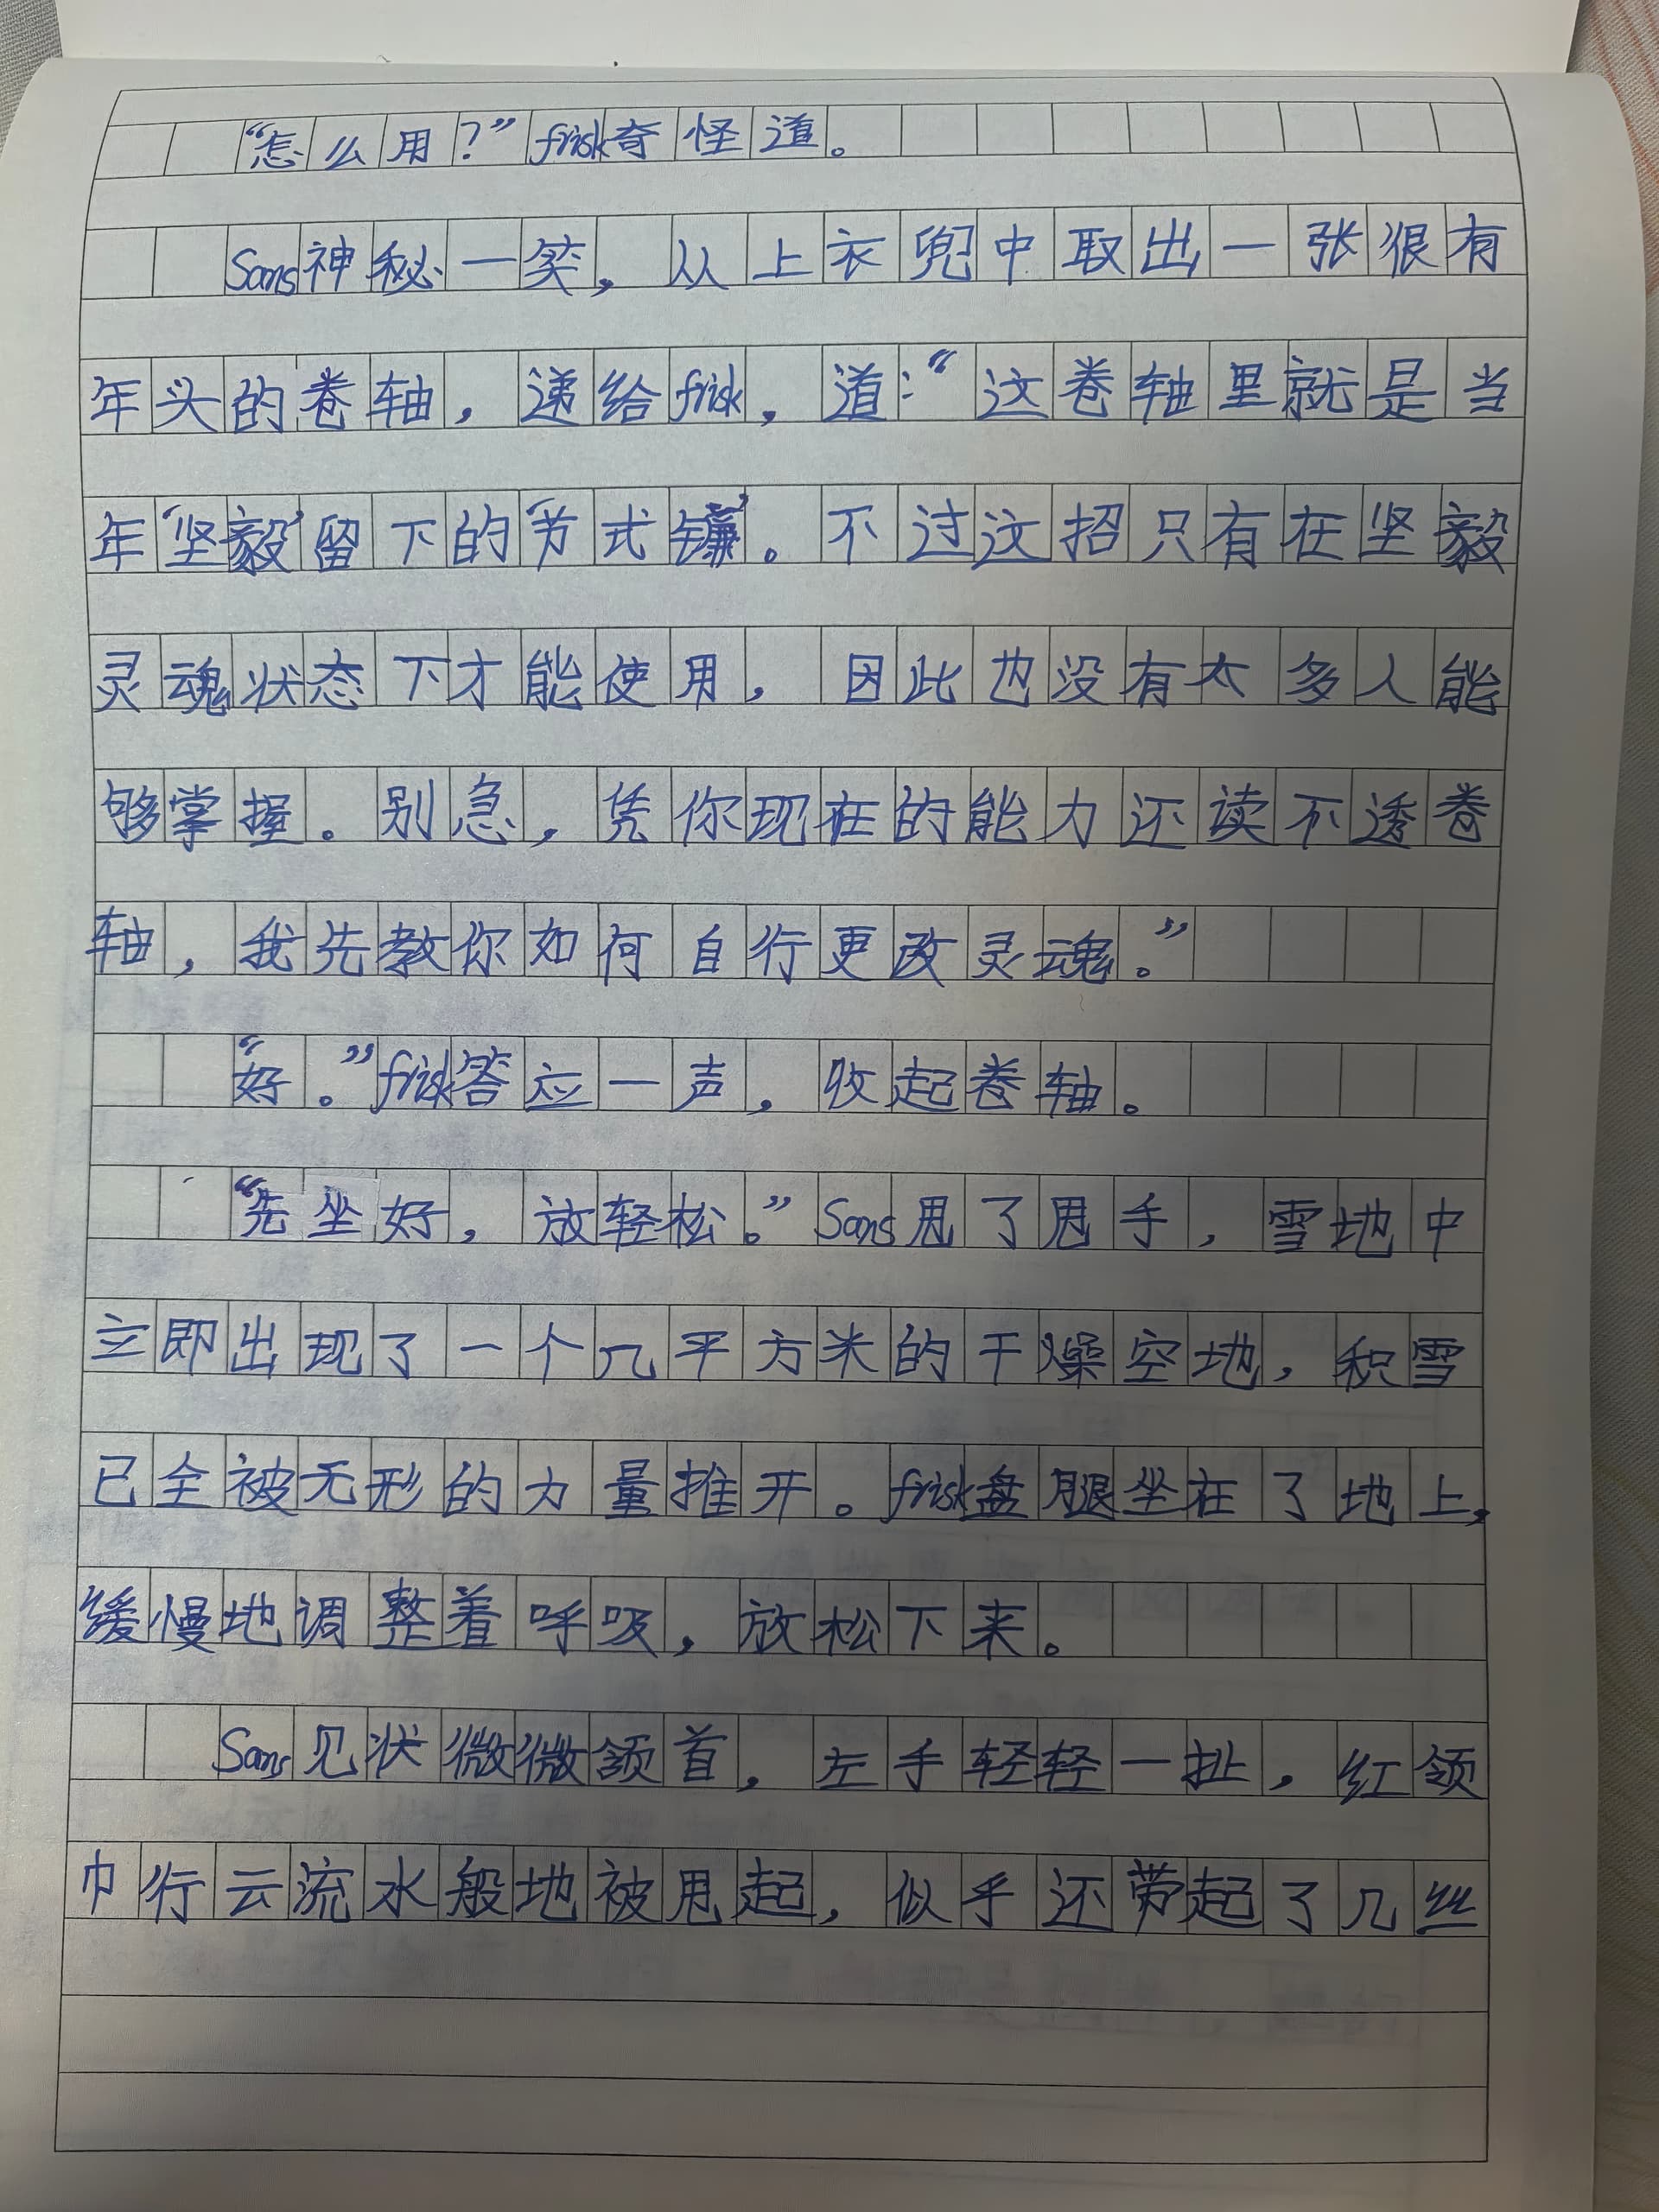 “怎么用？”frisk奇怪道。
Sans神秘一笑，从上衣兜中取出一张很有
年头的卷轴，递给frisk，道：“这卷轴里就是当
年‘坚毅’留下的‘节式镰’。不过这招只有在坚毅
灵魂状态下才能使用，因此也没有太多人能
够掌握。别急，凭你现在的能力还读不透卷
轴，我先教你如何自行更改灵魂。”
“好。”frisk答应一声，收起卷轴。
“先坐好，放轻松。”Sans甩了甩手，雪地中
立即出现了一个几平方米的干燥空地，积雪
已全被无形的力量推开。frisk盘腿坐在了地上，
缓慢地调整着呼吸，放松下来。
Sans见状微微颔首，左手轻轻一扯，红领
巾行云流水般地被甩起，似乎还带起了几丝